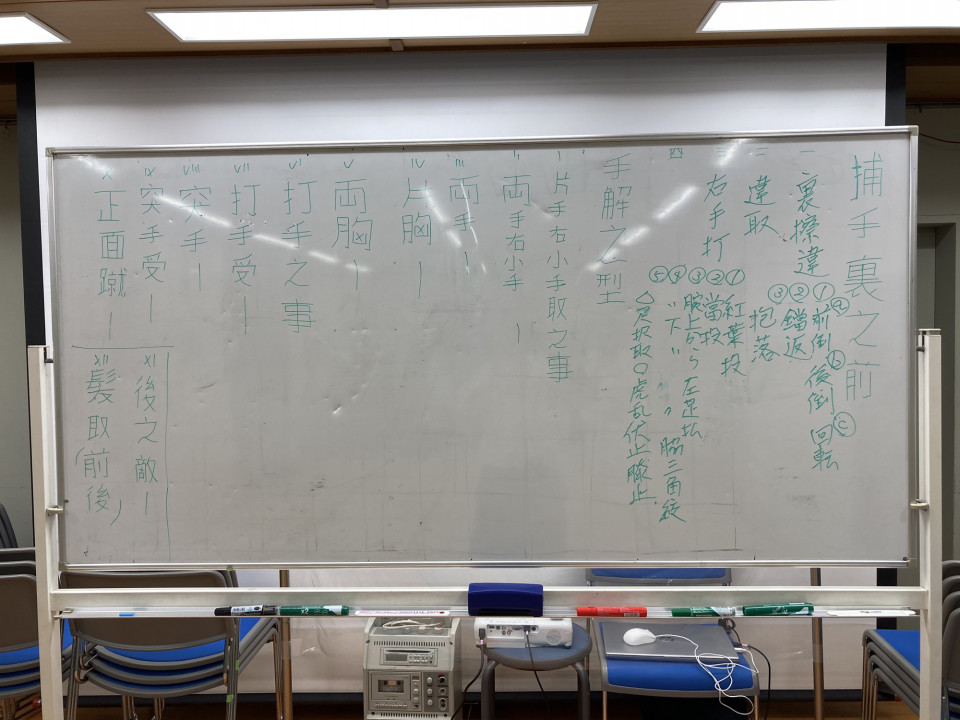 捕手裏之前
一 裏擦違
①ⓐ前倒 ⓑ後倒 ⓒ回転
②鐺返
③抱落
二 違取
三 右手打
①紅葉投
②當投
③腕上から左足払
④〃下〃 〃 〃 脇三角絞
⑤
四
手解之型
i 片手右小手取之事
ii 両手右小手 ー
iii 両手 ー
iv 片胸 ー
v 両胸 ー
vi 打手之事
vii 打手受 ー
viii 突手 ー
ix 突手受 ー
x 正面蹴 ー
xi 後之敵 ー
xii 髪取(前後)